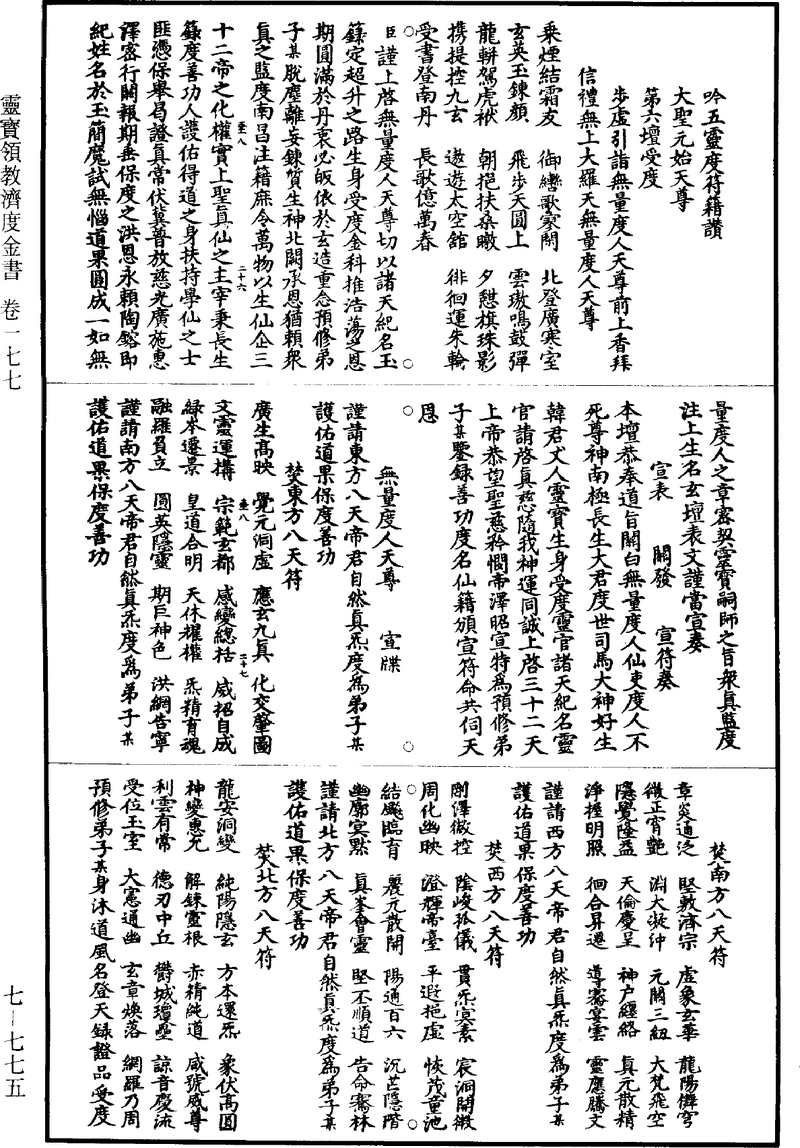 吟五靈度符籍讚
大聖元始天尊
第六壇受度
步虛引詣無量度人天尊前上香拜
信禮無上大羅天無量度人天尊
乘煙結霜友　御轡歌寥閒　北登廣寒室
玄英玉鍊顏　飛步天圓上　雲璈鳴鼓彈
龍軿駕虎袱　朝挹扶桑暾　夕憇旗珠影
携提控九玄　遨遊太空館　徘徊運朱輪
受書登南丹　長歌億萬春
臣謹上啓無量度人天尊切以諸天紀名玉
籙定超升之路生身受度金科推浩蕩之恩
期圓滿於丹衷必皈依於玄造重念預修弟
子某脫塵離妄鍊質生神北闕承恩猶賴衆
真之監度南昌注籍庶令萬物以生仙企三
十二帝之化權實上聖真仙之主宰秉長生
籙度善功人護佑得道之身扶持學仙之士
匪憑保舉曷證真常伏冀普放慈光廣施惠
澤密行關報期垂保度之洪恩永賴陶鎔即
紀姓名於玉簡魔試無惱道果圓成一如無
量度人之章密契靈寶嗣師之旨衆真監度
注上生名玄壇表文謹當宣奏
宣表　關發　宣符奏
本壇恭奉道旨關白無量度人仙吏度人不
死尊神南極長生大君度世司馬大神好生
韓君丈人靈寶生身受度靈官諸天紀名靈
官請啓真慈隨我神運同誠上啓三十二天
上帝恭望聖慈矜憫帝澤昭宣特為預修弟
子某鑒錄善功度名仙籍頒宣符命共伺天
恩
無量度人天尊　宣牒
謹請東方八天帝君自然真炁度為弟子某
護佑道果保度善功
焚東方八天符
廣生高映　覺元洞虛　應玄九真　化交肇圖
文靈運搆　宗範玄都　感變總括　威招自成
綠本遷景　皇道合明　天休擢權　炁積育魂
融羅員立　圓英隱靈　期巨神色　洪網告寧
謹請南方八天帝君自然真炁度為弟子某
護佑道果保度善功
焚南方八天符
章炎通泛　堅敷濟宗　虛象玄華　龍陽儛穹
微正宵艶　淵大凝沖　元關三紐　大梵飛空
隱覺隆益　天倫慶呈　神戶纒絡　真元散精
淨握明照　徊合昇遷　導審宴雲　靈應騰文
謹請西方八天帝君自然真炁度為弟子某
護佑道果保度善功
焚西方八天符
剛澤徽控　陰峻孤儀　貫炁冥素　宸洞開徽
周化幽映　澄輝帝臺　平遐挹虛　恢茂童池
結颷臨育　麗元散開　陽通百六　沉芒隱階
幽廓冥默　真峯會靈　堅丕順道　告命騫林
謹請北方八天帝君自然真炁度為弟子某
護佑道果保度善功
焚北方八天符
龍安洞變　純陽隱玄　方本還炁　象伏高圓
神變惠充　解鍊靈根　赤精純道　咸號威尊
利雲有常　德刃中丘　欝城瓊壘　諒音慶流
受位玉室　大憲通幽　玄章煥落　網羅乃周
預修弟子某身沐道風名登天錄證品受度
靈寶領教濟度金書　卷一七七
七—七七五